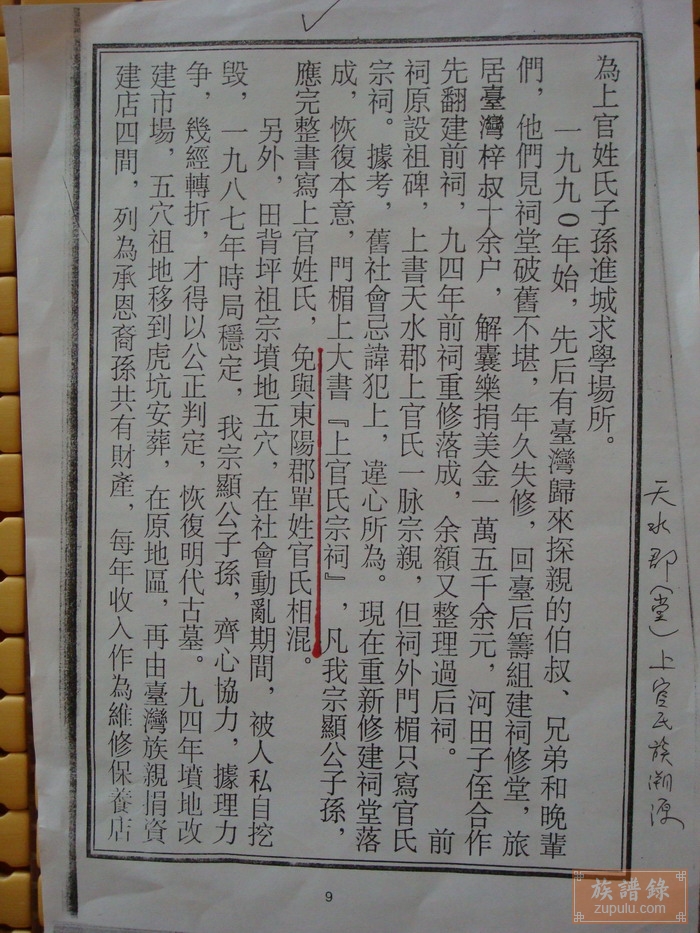 為上官姓氏子孫進城求學場所。
一九九0年始，先后有臺灣歸來探親的伯叔、兄弟和晚輩
們，他們見祠堂破舊不堪，年久失修，回臺后籌組建祠修堂，旅
居臺灣梓叔十余户，解囊樂捐美金一萬五千余元，河田子侄合作
先翻建前祠，九四年前祠重修落成，余額又整理過后祠。　前
祠原設祖碑，上書天水郡上官氏一脉宗親，但祠外門楣只寫官氏
宗祠。據考，舊社會忌諱犯上，違心所為。現在重新修建祠堂落
成，恢復本意，門楣上大書『上官氏宗祠』，凡我宗顯公子孫，
應完整書寫上官姓氏，免與東陽郡單姓官氏相混。
另外，田背坪祖宗墳地五穴，在社會動亂期間，被人私自挖
毀，一九八七年時局穩定，我宗顯公子孫，齊心協力，據理力
争，幾經轉折，才得以公正判定，恢復明代古墓。九四年墳地改
建市場，五穴祖地移到虎坑安葬，在原地區，再由臺灣族親捐資
建店四間，列為承恩裔孫共有財產，每年收入作為維修保養店
天水郡(堂)上官氏族溯源
9
族譜錄
zupulu.com